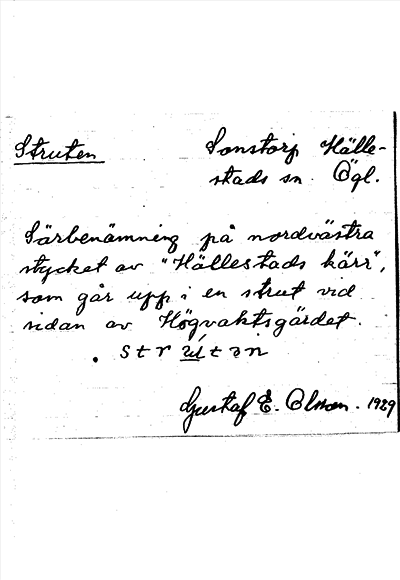 Struten
Sonstorp Hälle-
stads sn. Ögl.
Särbenämning på nordvästra
stycket av "Hällestads kärr",
som går upp i en strut vid
sidan av Högvaktsgärdet.
. strútən
Gustaf E. Olsson. 1929